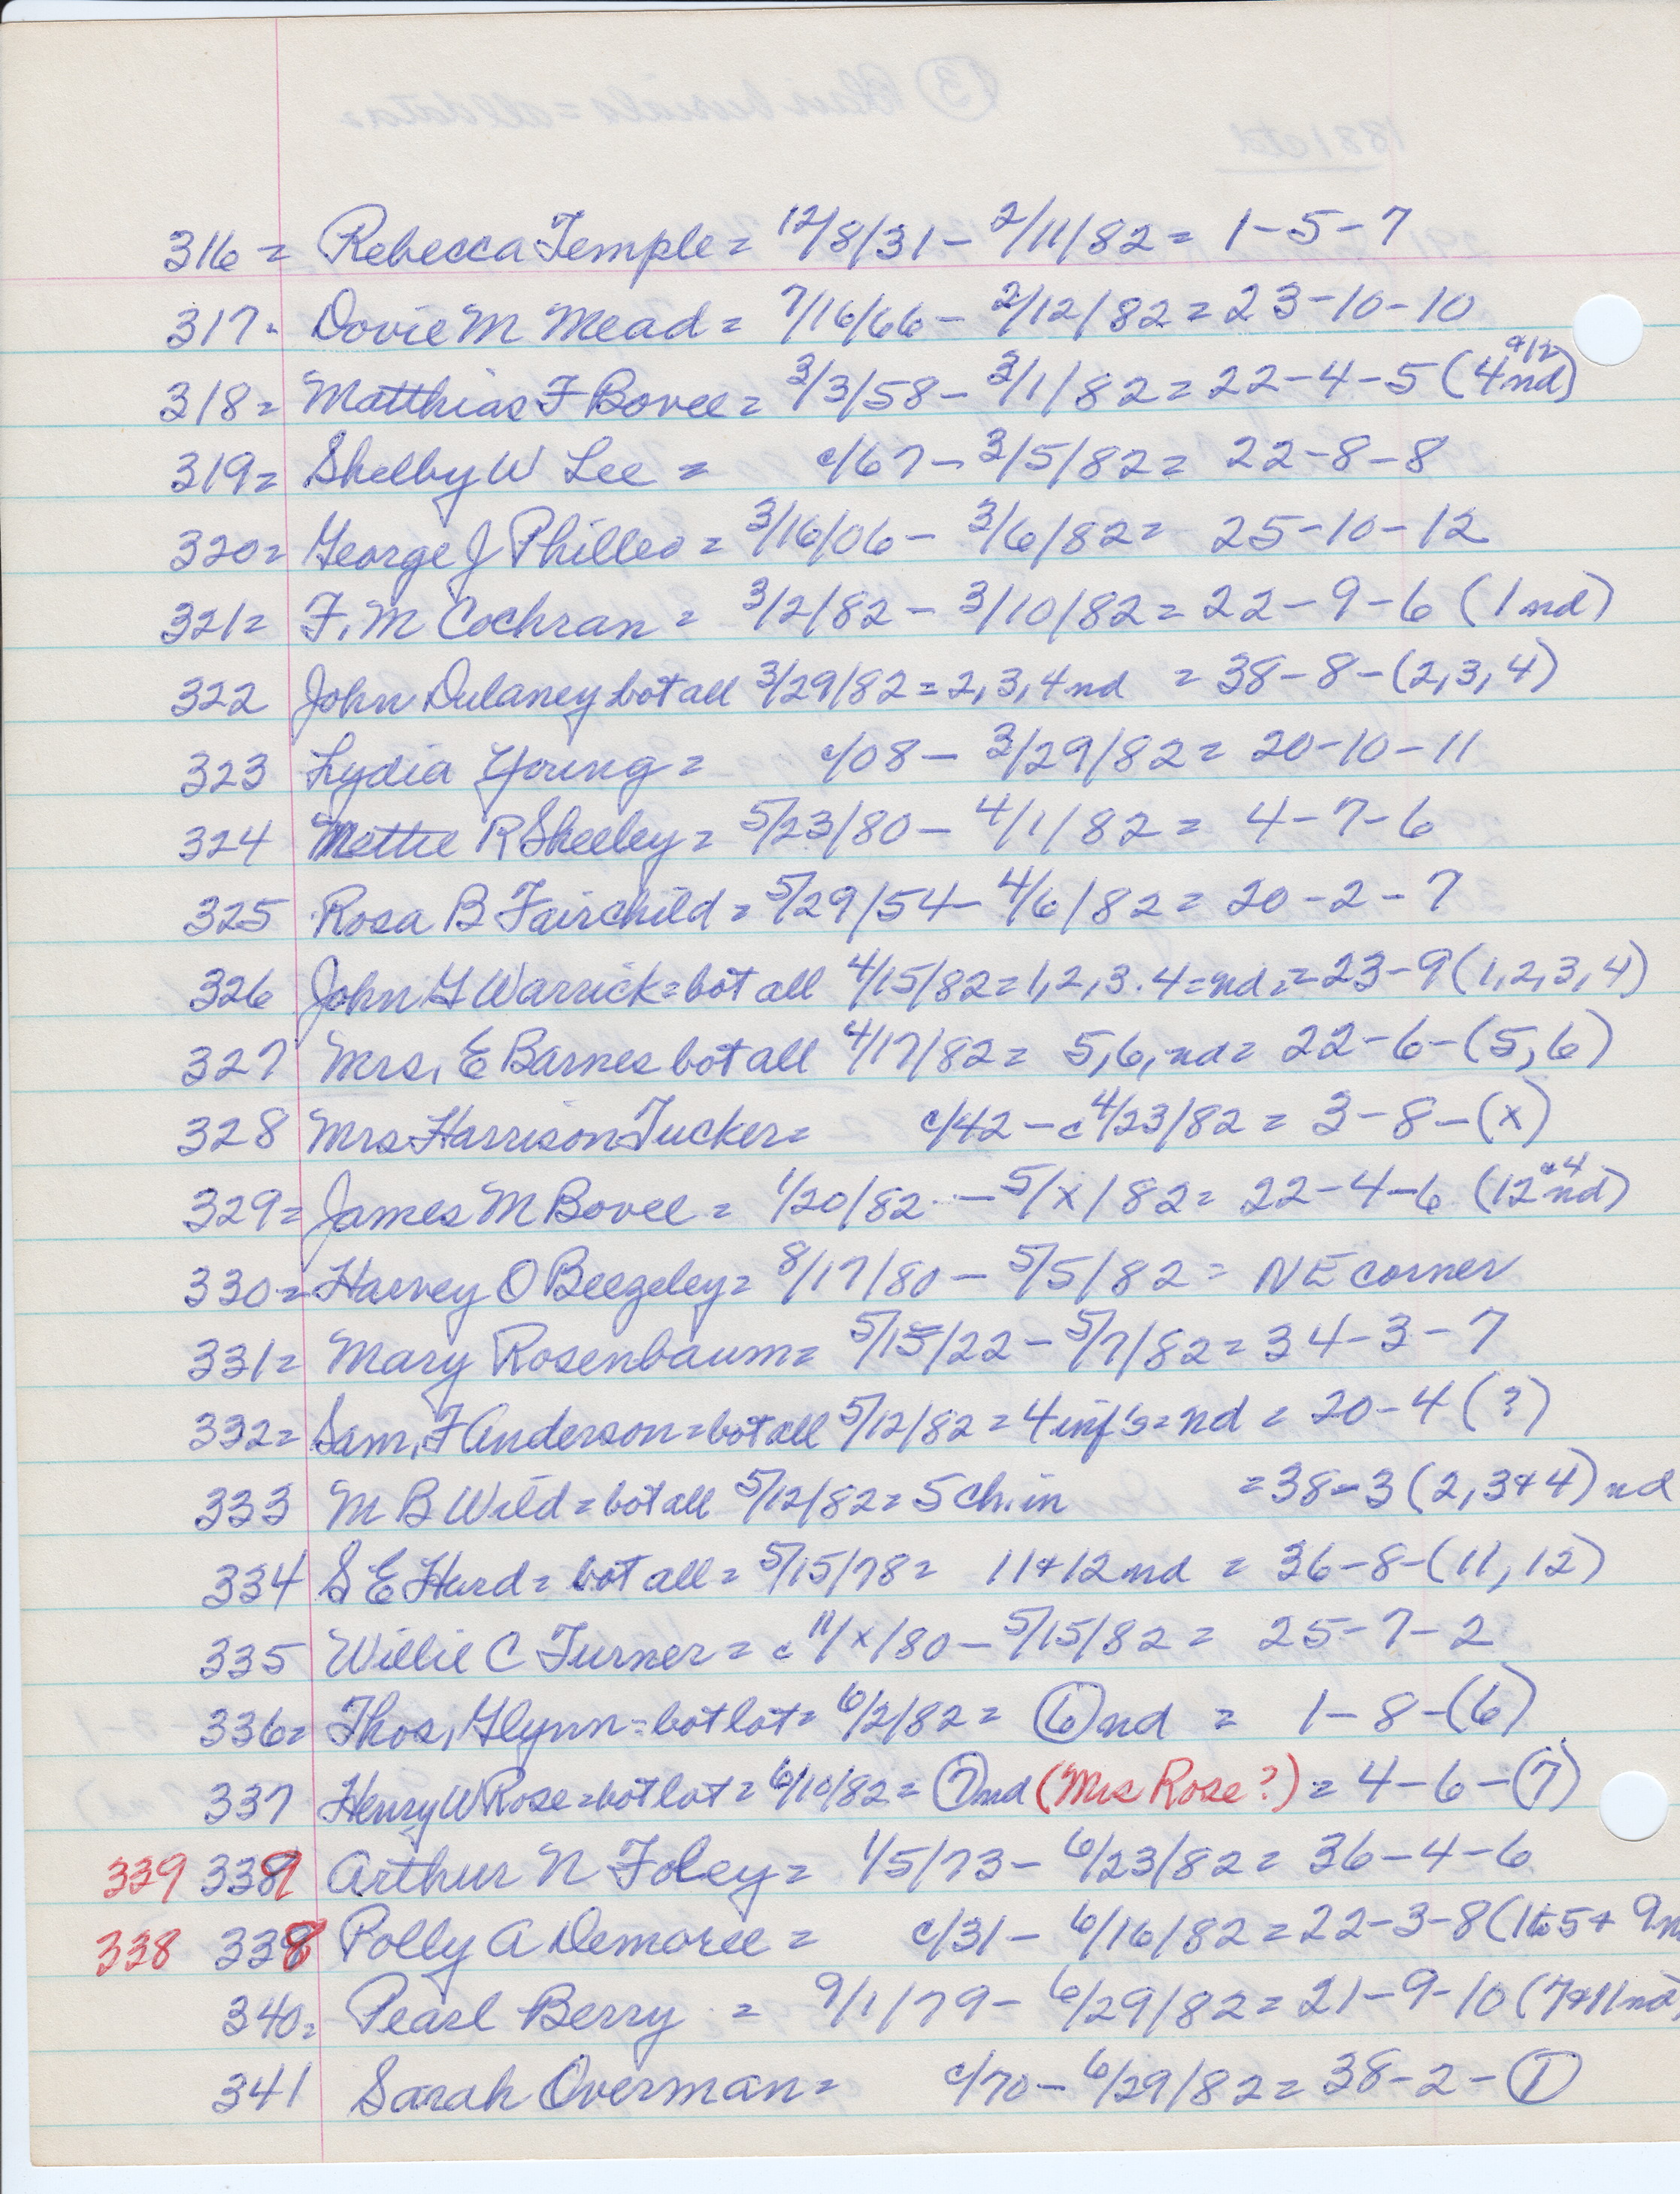 316 = Rebecca Temple = 12/8/31 - 2/11/82 = 1-5-7
317. Dovie M Mead = 7/16/66 - 2/12/82 = 23-10-10
318 = Matthias F Bovee = 3/3/58 - 3/1/82 = 22-4-5 (4 nd)
319 = Shelby W Lee = c/67 - 3/5/82 = 22-8-8
320 = George J Philleo = 3/16/06 - 3/6/82 = 25-10-12
321 = F. M Cochran = 3/2/82 - 3/10/82 = 22-9-6 (1 nd)
322 John Dulaney bot all 3/29/82 = 2, 3, 4 nd = 38-8-(2, 3, 4)
323 Lydia Young = c/08 - 3/29/82 = 20-10-11
324 Mettie R Sheeley = 5/23/80 - 4/1/82 = 4-7-6
325 Rosa B Fairchild = 5/29/54 - 4/6/82 = 20-2-7
326 John G Warrick = bot all 4/15/82 = 1, 2, 3. 4 = nd. = 23-9 (1, 2, 3, 4)
327 Mrs. E Barnes bot all 4/17/82 = 5, 6, nd = 22-6-(5, 6)
328 Mrs Harrison Tucker = c/42 - c 4/23/82 = 3-8-(x)
329 = James M Bovee = 1/20/82 - 5/x/82 = 22-4-6 (12 + 4 nd)
330 = Harvey O Beezeley = 8/17/80 - 5/5/82 = NE corner
331 = Mary Rosenbaum = 5/15/22 - 5/7/82 = 34-3-7
332 = Sam. F Anderson = bot all 5/12/82 = 4 inf's = nd = 20-4 (?)
333 M B Wild = bot all 5/12/82 = 5 ch. in = 38-3 (2, 3 + 4) nd
334 S E Hurd = bot all = 5/15/78 = 11 + 12 nd = 36-8-(11, 12)
335 Willie C Turner = c 11/x/80 - 5/15/82 = 25-7-2
336 = Thos. Glynn = bot lot = 6/2/82 = 6 nd = 1-8-(6)
337 Henry W Rose = bot lot = 6/10/82 = 7 nd (Mrs Rose?) = 4-6-(7)
339 339 Arthur N Foley = 1/5/73 - 6/23/82 = 36-4-6
338 338 Polly A Demoree = c/31 - 6/16/82 = 22-3-8 (1 to 5 + 9
340 = Pearl Berry = 9/1/79 - 6/29/82 = 21-9-10 (7 + 11 nd)
341 Sarah Overman = c/70 - 6/29/82 = 38-2-1